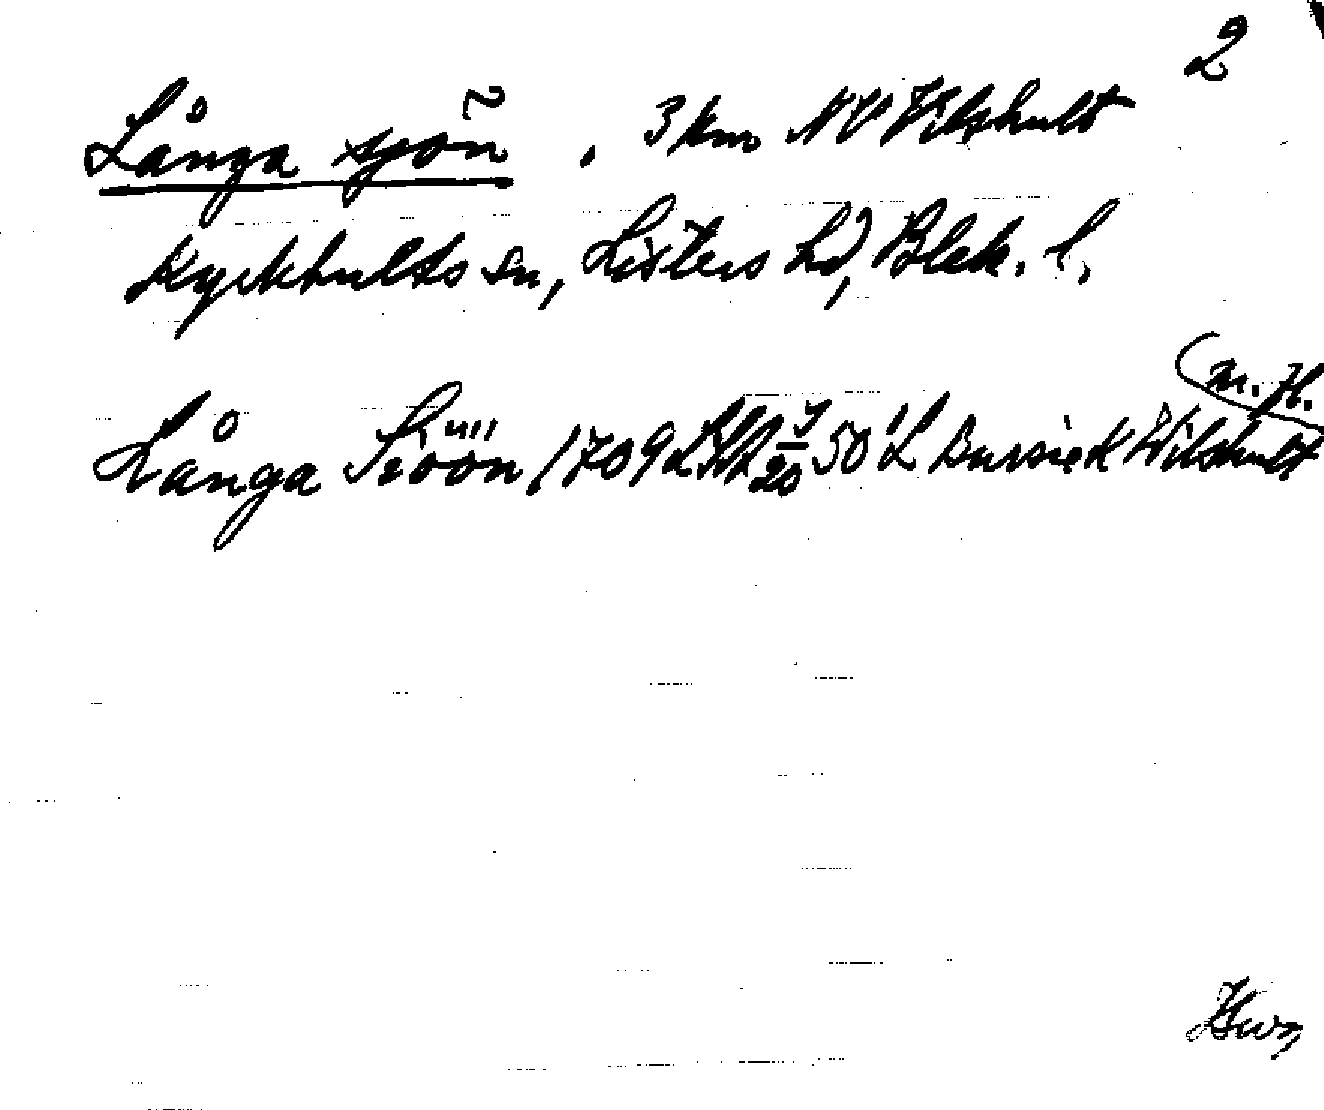 2
Långa sjön, 3 km NV Vilshult
Kyrkhults sn, Listers hd, Blek. l.
(m. H.
Långa Siöön 1709 50 L Bursie K Wilshult